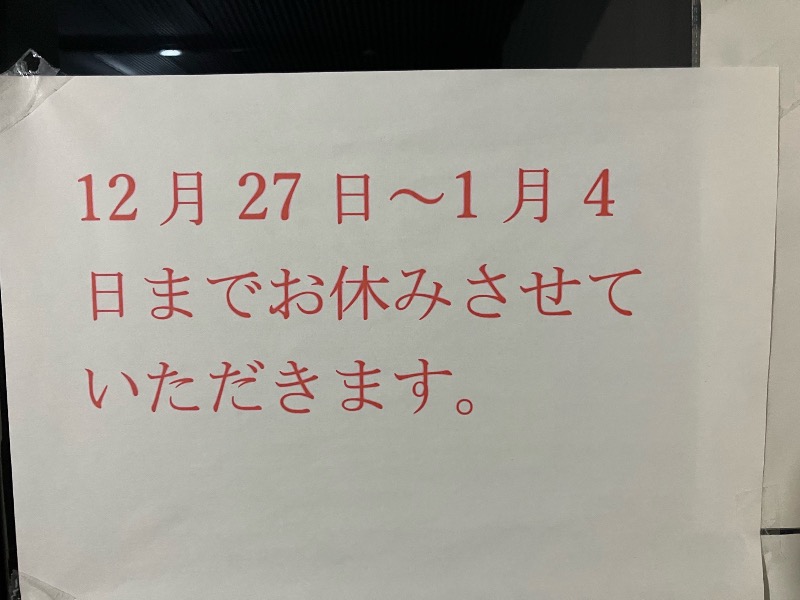 12月27日～1月4
日までお休みさせて
いただきます。